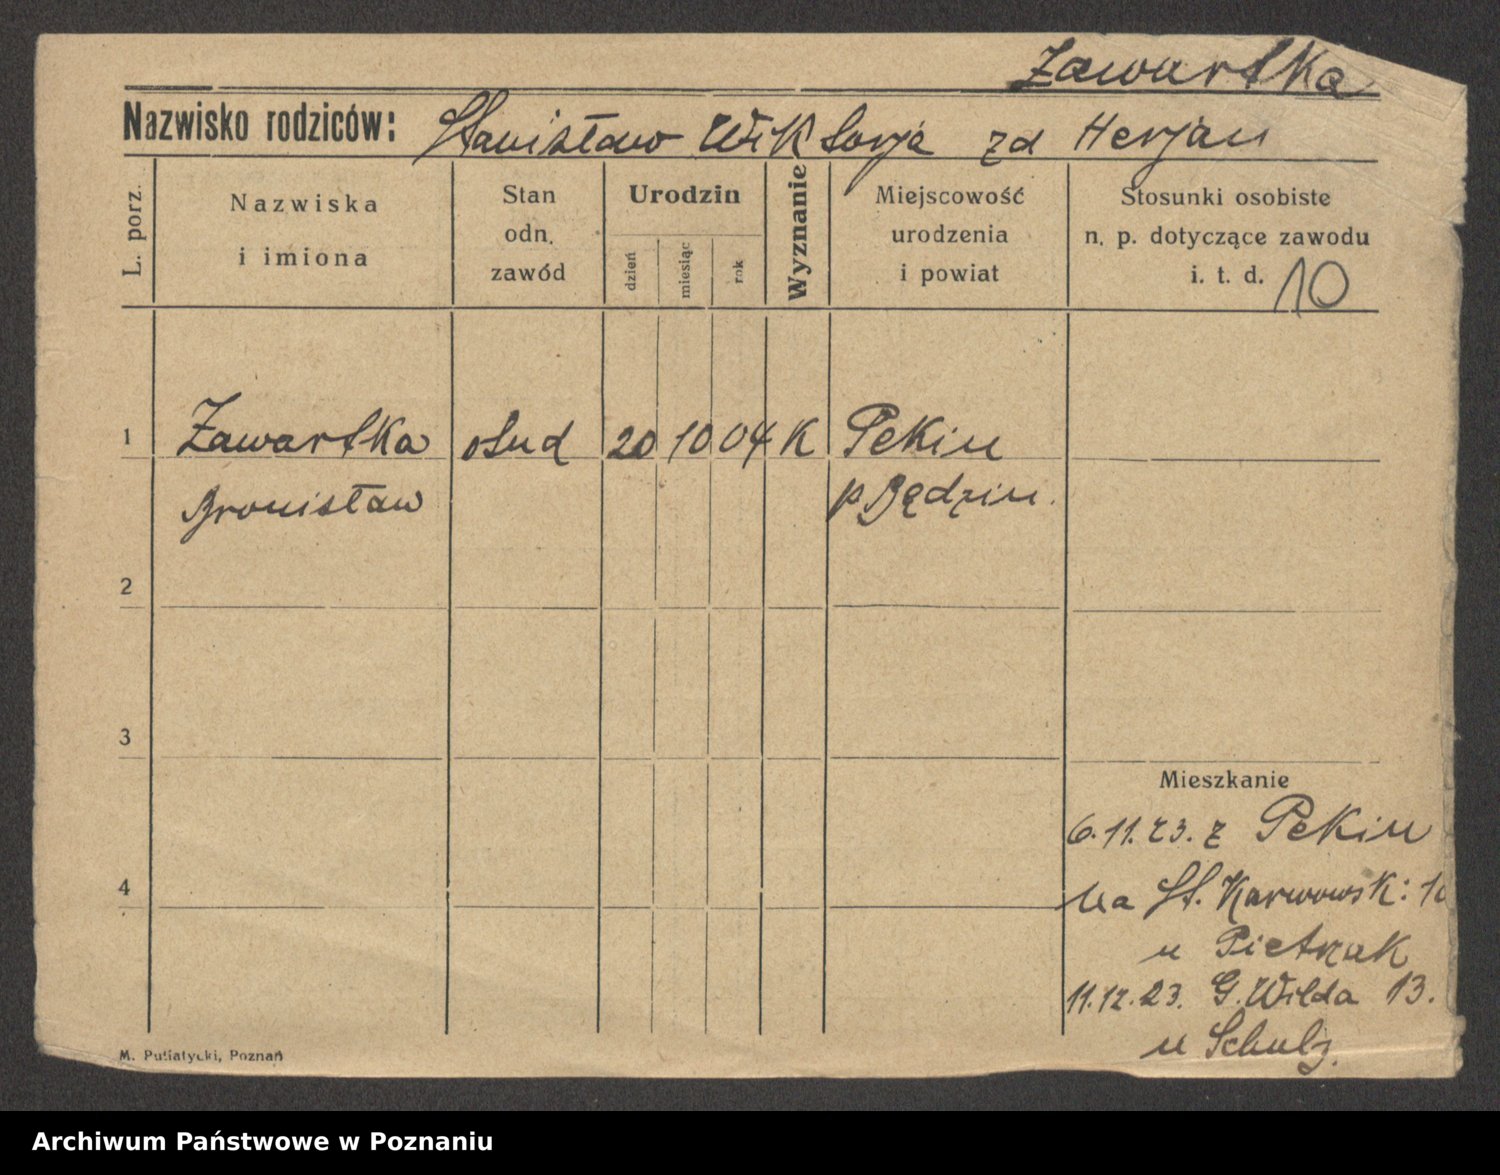 Zawartka
Nazwisko rodziców: Stanisław Wiktorja zd Herjan
L. porz.
Nazwiska
i imiona
Stan
odn.
zawód
Urodzin
dzień
miesiąc
rok
Wyznanie
Miejscowość
urodzenia
i powiat
Stosunki osobiste
n. p. dotyczące zawodu
i. t. d. 10
1 Zawartka stud 20 10 04 K Pekin
Bronisław p Będzin.
2
3
Mieszkanie
6.11.23. z Pekin
4
na St. Karwowsk: 10
u Pietrzak
11.12.23. G. Wilda 13.
u Schulz.
M. Putiatycki, Poznań
Archiwum Państwowe w Poznaniu